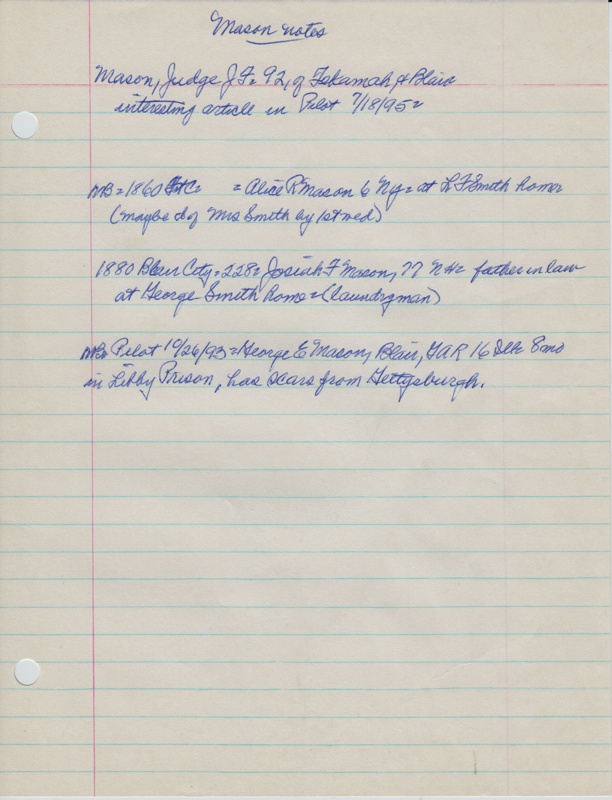 Mason notes
Mason, Judge J F= 92, of Tekamah & Blair
interesting article in Pilot 7/18/95=
MB=1860 = Alice R Mason 6 NY= at L F Smith home
(maybe d of Mrs Smith by 1st wed)
1880 Blair City=228= Josiah F Mason, 77 NH= father in law
at George Smith home=(laundryman)
MB= Pilot 10/26/93=George E Mason, Blair, GAR 16 8mo
in Libby Prison, has scars from Gettysburgh.